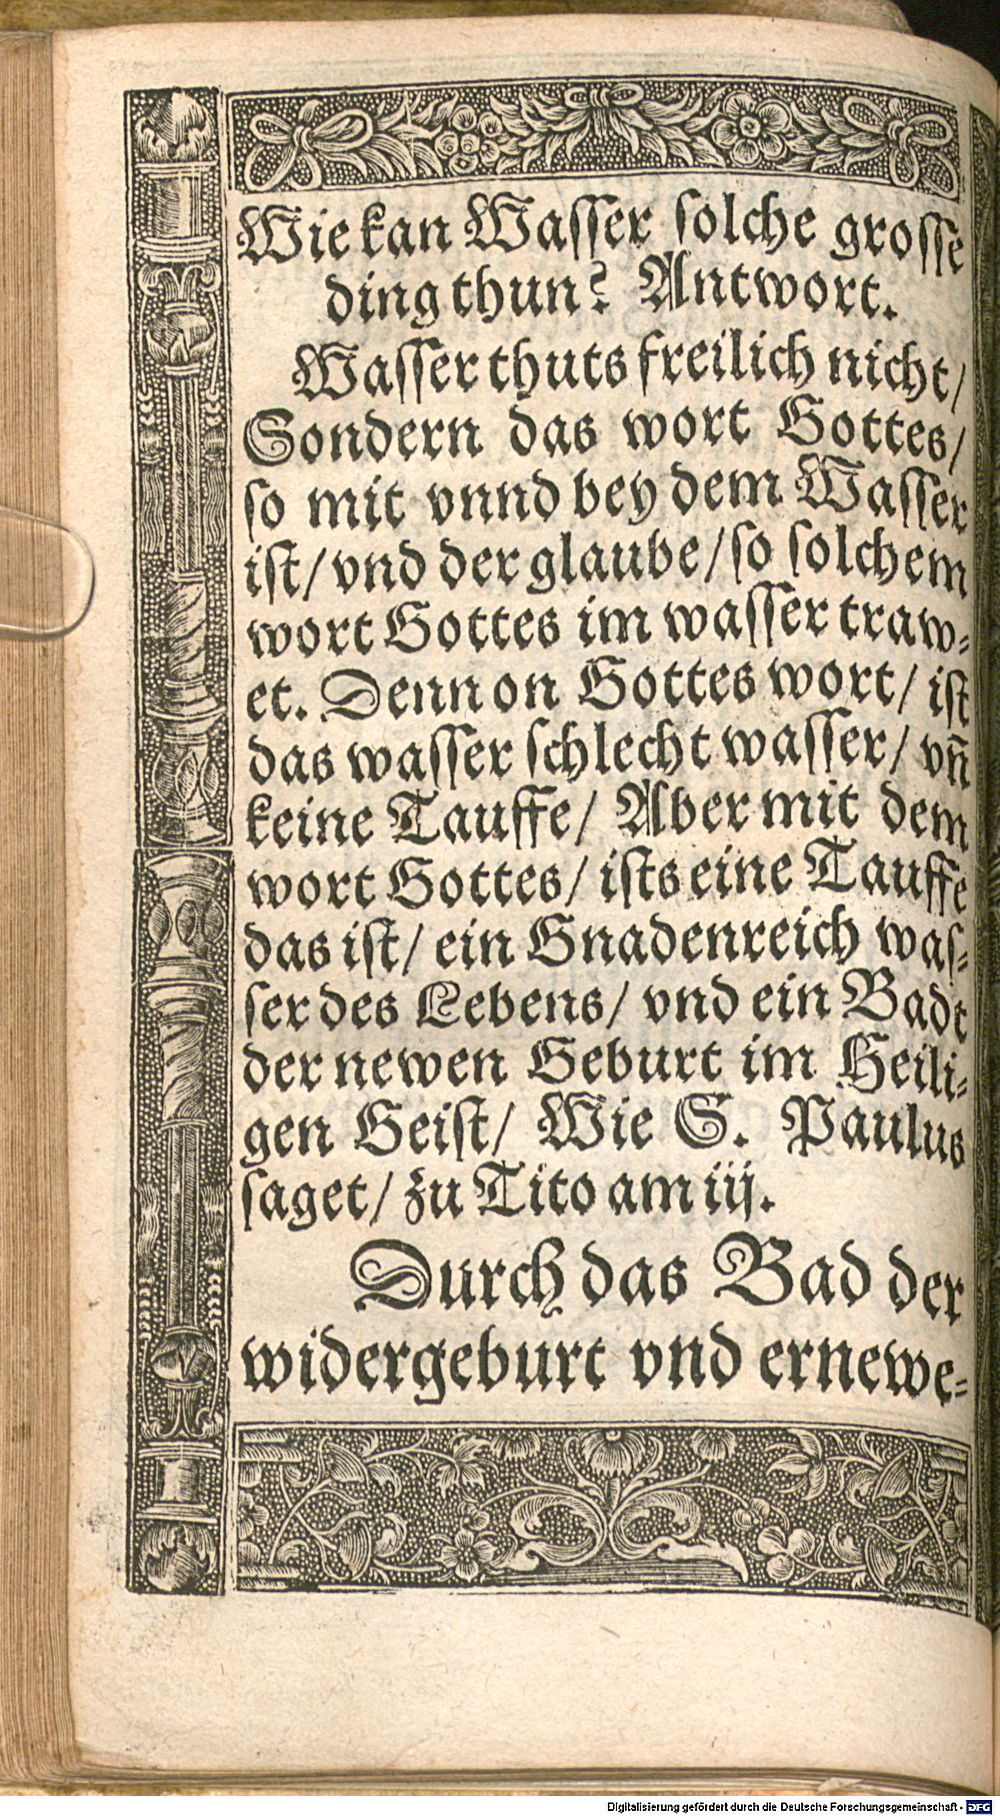 Wie kan Wasser solche grosse
ding thun? Antwort.
Wasser thuts freilich nicht/
Sondern das wort Gottes/
so mit vnnd bey dem Wasser
ist/ vnd der glaube/ so solchem
wort Gottes im wasser traw⸗
et. Denn on Gottes wort/ ist
das wasser schlecht wasser/ vn̄
keine Tauffe/ Aber mit dem
wort Gottes/ ists eine Tauffe
das ist/ ein Gnadenreich was⸗
ser des Lebens/ vnd ein Badt
der newen Geburt im Heili⸗
gen Geist/ Wie S. Paulus
saget/ zu Tito am iij.
Durch das Bad der
widergeburt vnd ernewe⸗
Digitalisierung gefördert durch die Deutsche Forschungsgemeinschaft - DFG